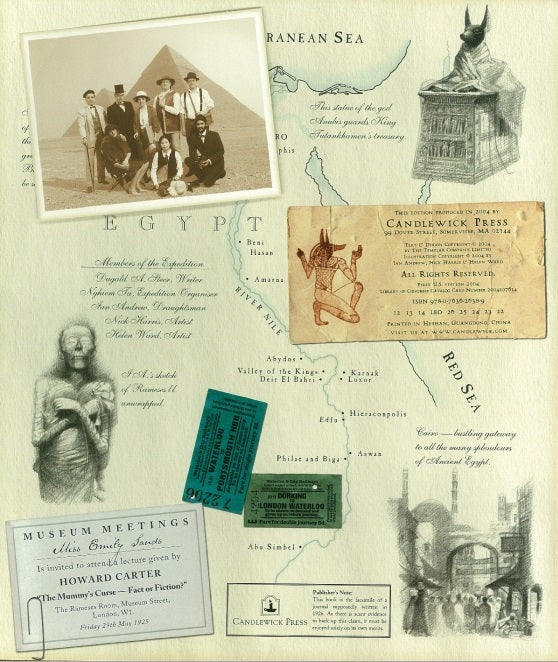 RANEAN SEA
This statue of the god
Anubis guards King
Tutankhamen's treasury.
RO
phis
EGYPT
THIS EDITION PRODUCED IN 2004 BY
CANDLEWICK PRESS
99 DOVER STREET, SOMERVILLE, MA 02144
TEXT & DESIGN COPYRIGHT © 2004
BY THE TEMPLAR COMPANY LIMITED
ILLUSTRATION COPYRIGHT © 2004 BY
IAN ANDREW, NICK HARRIS & HELEN WARD
ALL RIGHTS RESERVED.
FIRST U.S. EDITION 2004
LIBRARY OF CONGRESS CATALOG CARD NUMBER 2004107614
ISBN 978-0-7636-2638-9
12 13 14 LEO 28 25 24 23 22
PRINTED IN HESHAN, GUANGDONG, CHINA
VISIT US AT WWW.CANDLEWICK.COM
Members of the Expedition
Dugald A. Steer, Writer
Nghiem Ta, Expedition Organiser
Ian Andrew, Draughtsman
Nick Harris, Artist
Helen Ward, Artist
Beni
Hasan
Amarna
RIVER NILE
I.A.'s sketch
of Rameses II
unwrapped.
Abydos
Valley of the Kings
Deir El Bahri
Karnak
Luxor
RED SEA
Hieraconpolis
Edfu
Philae and Biga
Aswan
Abu Simbel
Cairo — bustling gateway
to all the many splendours
of Ancient Egypt.
WATERLOO
PORTSMOUTH HBR
DORKING
LONDON WATERLOO
Fare for double journey 8d.
MUSEUM MEETINGS
Miss Emily Sands
Is invited to attend a lecture given by
HOWARD CARTER
"The Mummy's Curse — Fact or Fiction?"
The Rameses Room, Museum Street,
London, W1.
Friday 29th May 1925
CANDLEWICK PRESS
Publisher's Note:
This book is the facsimile of a
journal supposedly written in
1926. As there is scant evidence
to back up this claim, it must be
enjoyed solely on its own merits.